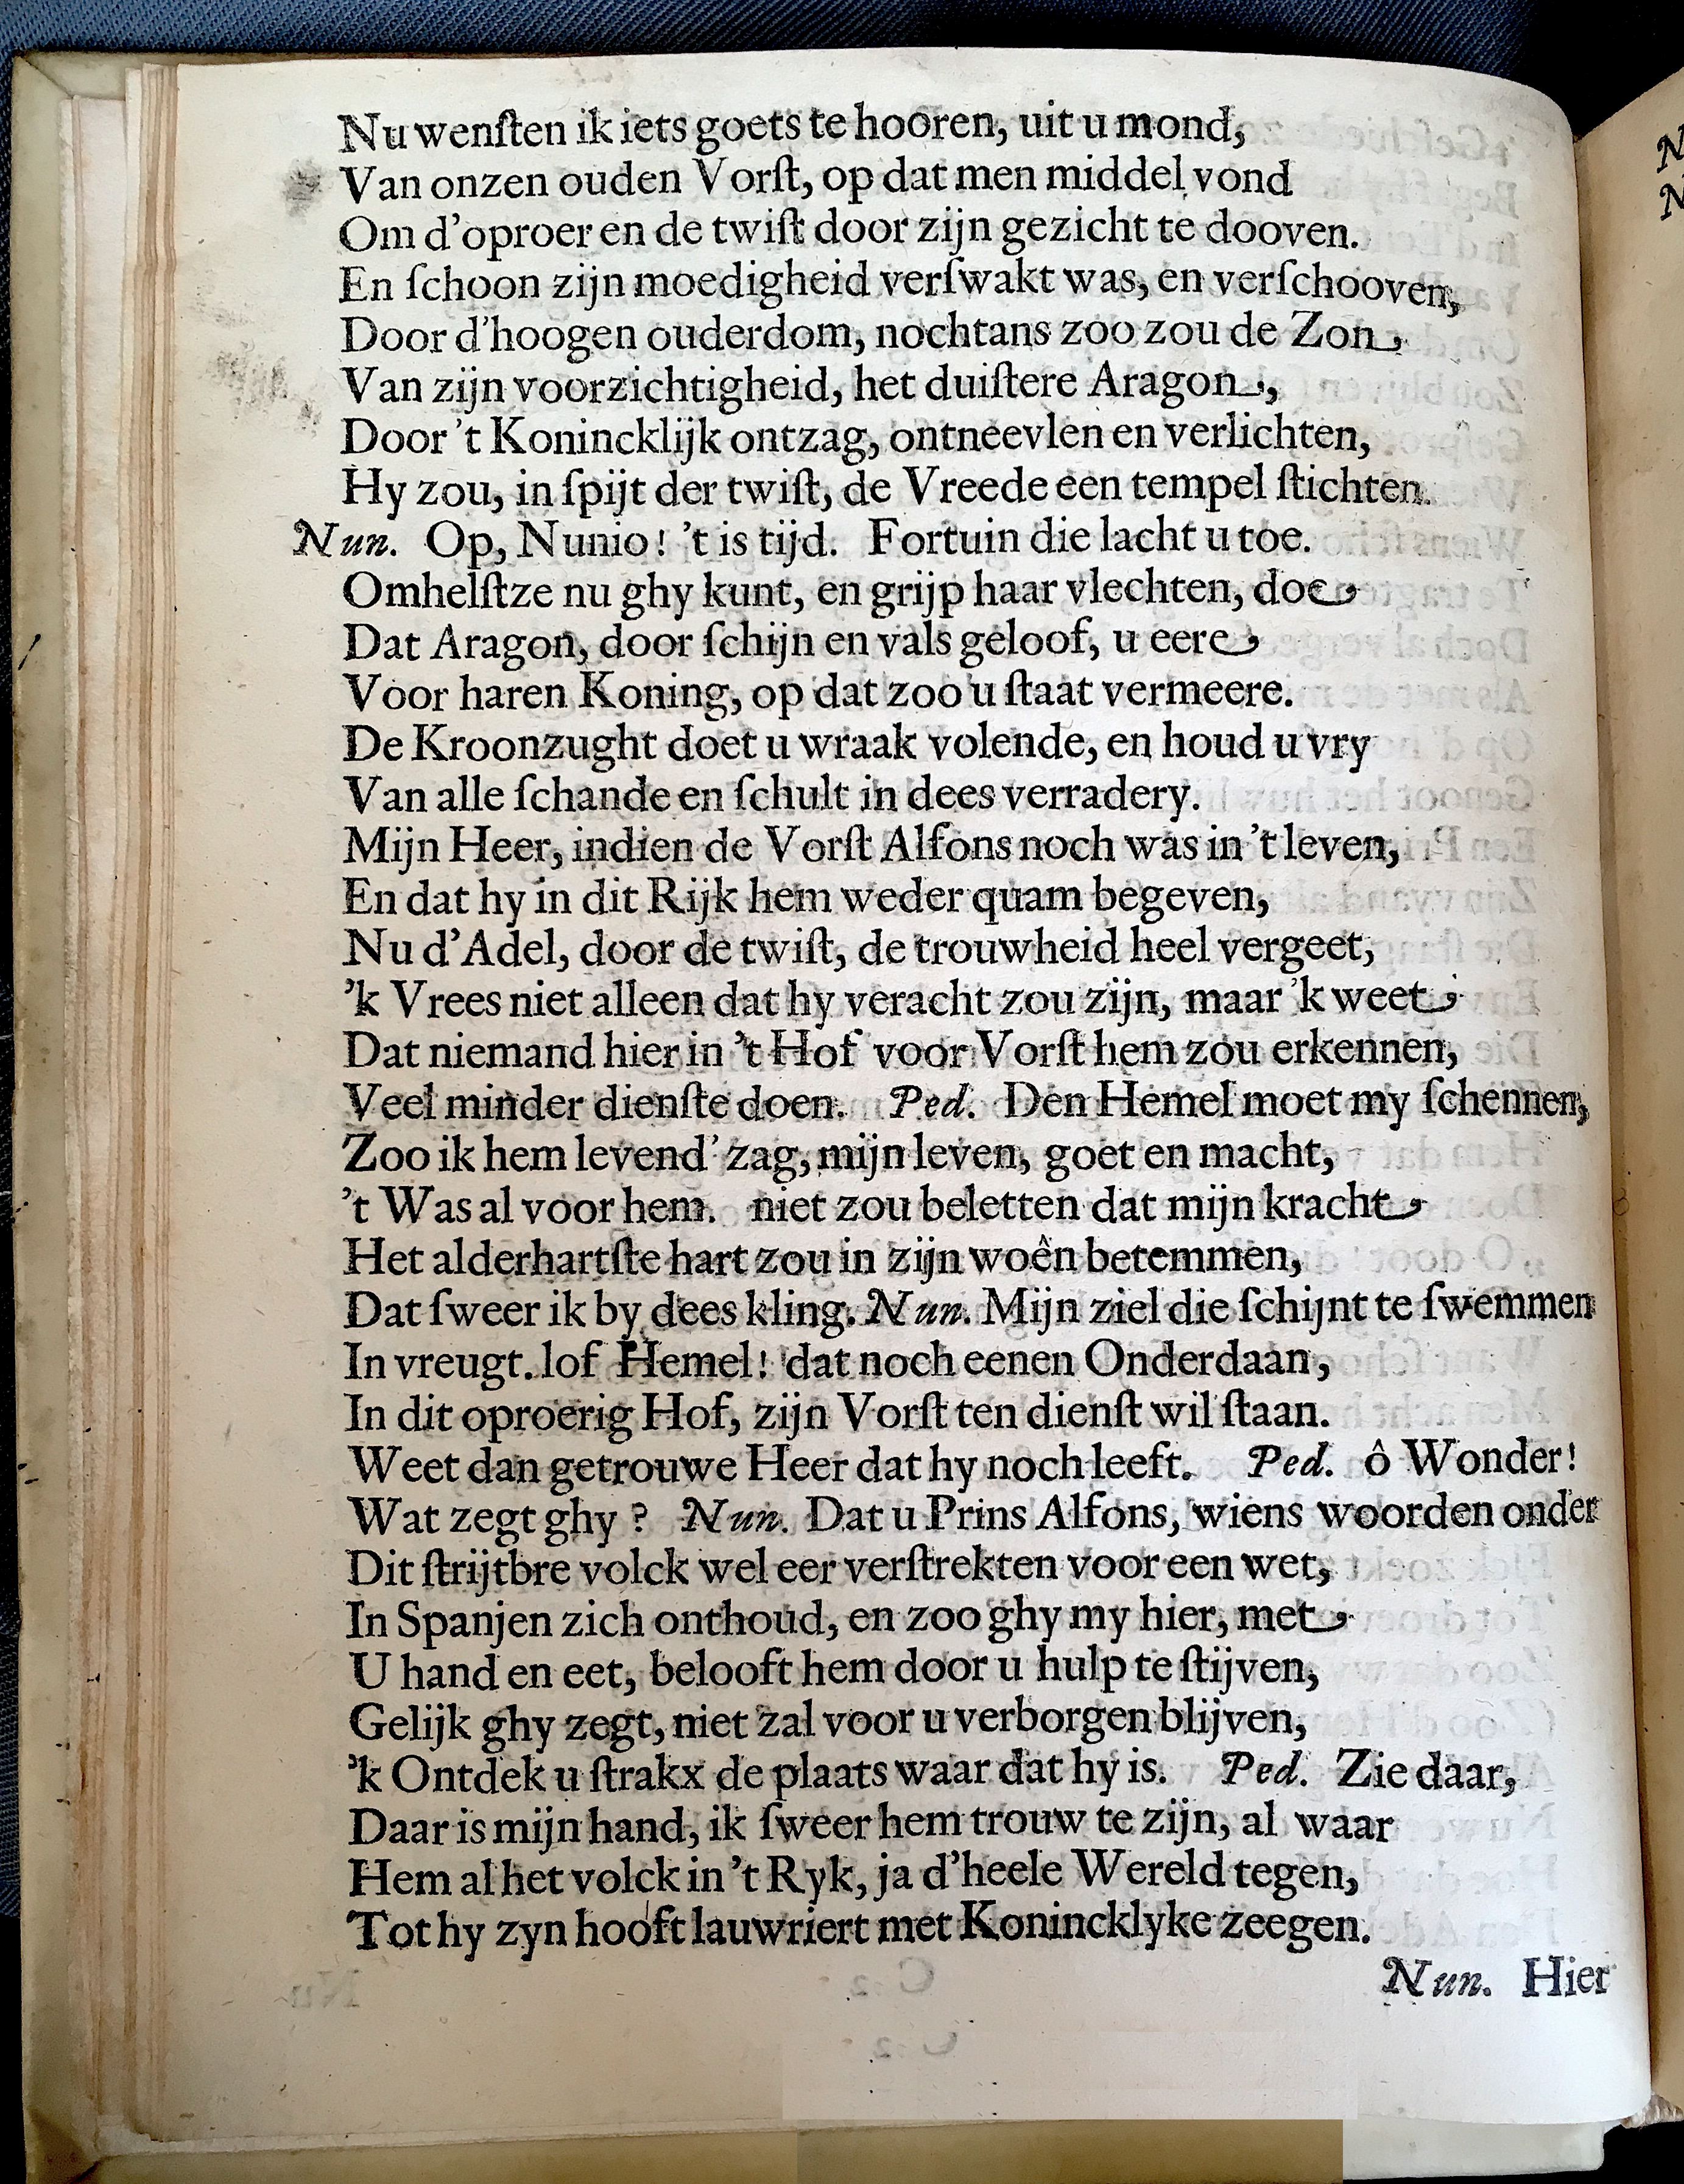 Nu wenſten ik iets goets te hooren, uit u mond,
Van onzen ouden Vorſt, op dat men middel vond
Om d'oproer en de twiſt door zijn gezicht te dooven.
En ſchoon zijn moedigheid verſwakt was, en verſchooven,
Door d'hoogen ouderdom, nochtans zoo zou de Zon
Van zijn voorzichtigheid, het duiſtere Aragon,
Door 't Konincklijk ontzag, ontneevlen en verlichten,
Hy zou, in ſpijt der twiſt, de Vreede een tempel ſtichten.
Nun. Op, Nunio! 't is tijd. Fortuin die lacht u toe.
Omhelſtze nu ghy kunt, en grijp haar vlechten, doe
Dat Aragon, door ſchijn en vals geloof, u eere
Voor haren Koning, op dat zoo u ſtaat vermeere.
De Kroonzught doet u wraak volende, en houd u vry
Van alle ſchande en ſchult in dees verradery.
Mijn Heer, indien de Vorſt Alfons noch was in 't leven,
En dat hy in dit Rijk hem weder quam begeven,
Nu d'Adel, door de twiſt, de trouwheid heel vergeet,
'k Vrees niet alleen dat hy veracht zou zijn, maar 'k weet
Dat niemand hier in 't Hof voor Vorſt hem zou erkennen,
Veel minder dienſte doen. Ped. Den Hemel moet my ſchennen,
Zoo ik hem levend' zag, mijn leven, goet en macht,
't Was al voor hem. niet zou beletten dat mijn kracht
Het alderhartſte hart zou in zijn woên betemmen,
Dat ſweer ik by dees kling. Nun. Mijn ziel die ſchijnt te ſwemmen
In vreugt. lof Hemel! dat noch eenen Onderdaan,
In dit oproerig Hof, zijn Vorſt ten dienſt wil ſtaan.
Weet dan getrouwe Heer dat hy noch leeft. Ped. ô Wonder!
Wat zegt ghy? Nun. Dat u Prins Alfons, wiens woorden onder
Dit ſtrijtbre volck wel eer verſtrekten voor een wet,
In Spanjen zich onthoud, en zoo ghy my hier, met
U hand en eet, belooft hem door u hulp te ſtijven,
Gelijk ghy zegt, niet zal voor u verborgen blijven,
'k Ontdek u ſtrakx de plaats waar dat hy is. Ped. Zie daar,
Daar is mijn hand, ik ſweer hem trouw te zijn, al waar
Hem al het volck in 't Ryk, ja d'heele Wereld tegen,
Tot hy zyn hooft lauwriert met Konincklyke zeegen.
Nun. Hier